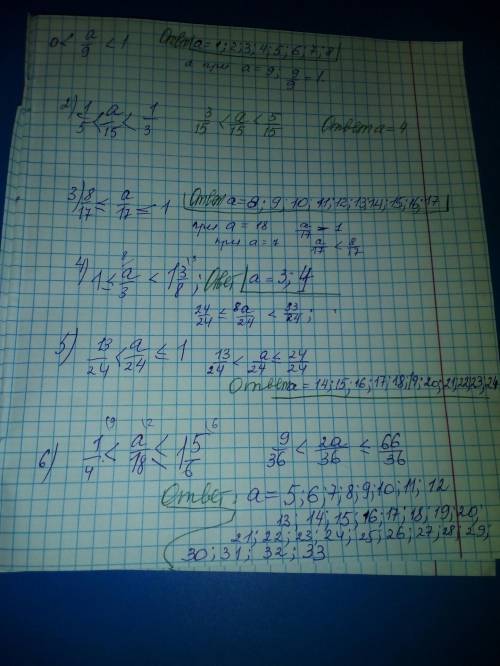 0 < a/9 < 1 Ответ a = 1; 2; 3; 4; 5; 6; 7; 8
при a = 9; 9/9 = 1
2) 1/5 < a/15 < 1/3 3/15 < a/15 < 5/15 Ответ a = 4
3) 8/17 ≤ a/17 ≤ 1 Ответ a = 8; 9; 10; 11; 12; 13; 14; 15; 16; 17
при a = 18 a/17 > 1
при a = 7 a/17 < 8/17
4) 1 ≤ a/3 < 1 3/8; Ответ a = 3; 4
24/24 ≤ 8a/24 < 33/24;
5) 13/24 < a/24 ≤ 1 13/24 < a/24 ≤ 24/24
Ответ a = 14; 15; 16; 17; 18; 19; 20; 21; 22; 23; 24
6) 1/4 < a/18 ≤ 1 5/6 9/36 < 2a/36 ≤ 66/36
Ответ: a = 5; 6; 7; 8; 9; 10; 11; 12
13; 14; 15; 16; 17; 18; 19; 20;
21; 22; 23; 24; 25; 26; 27; 28; 29;
30; 31; 32; 33